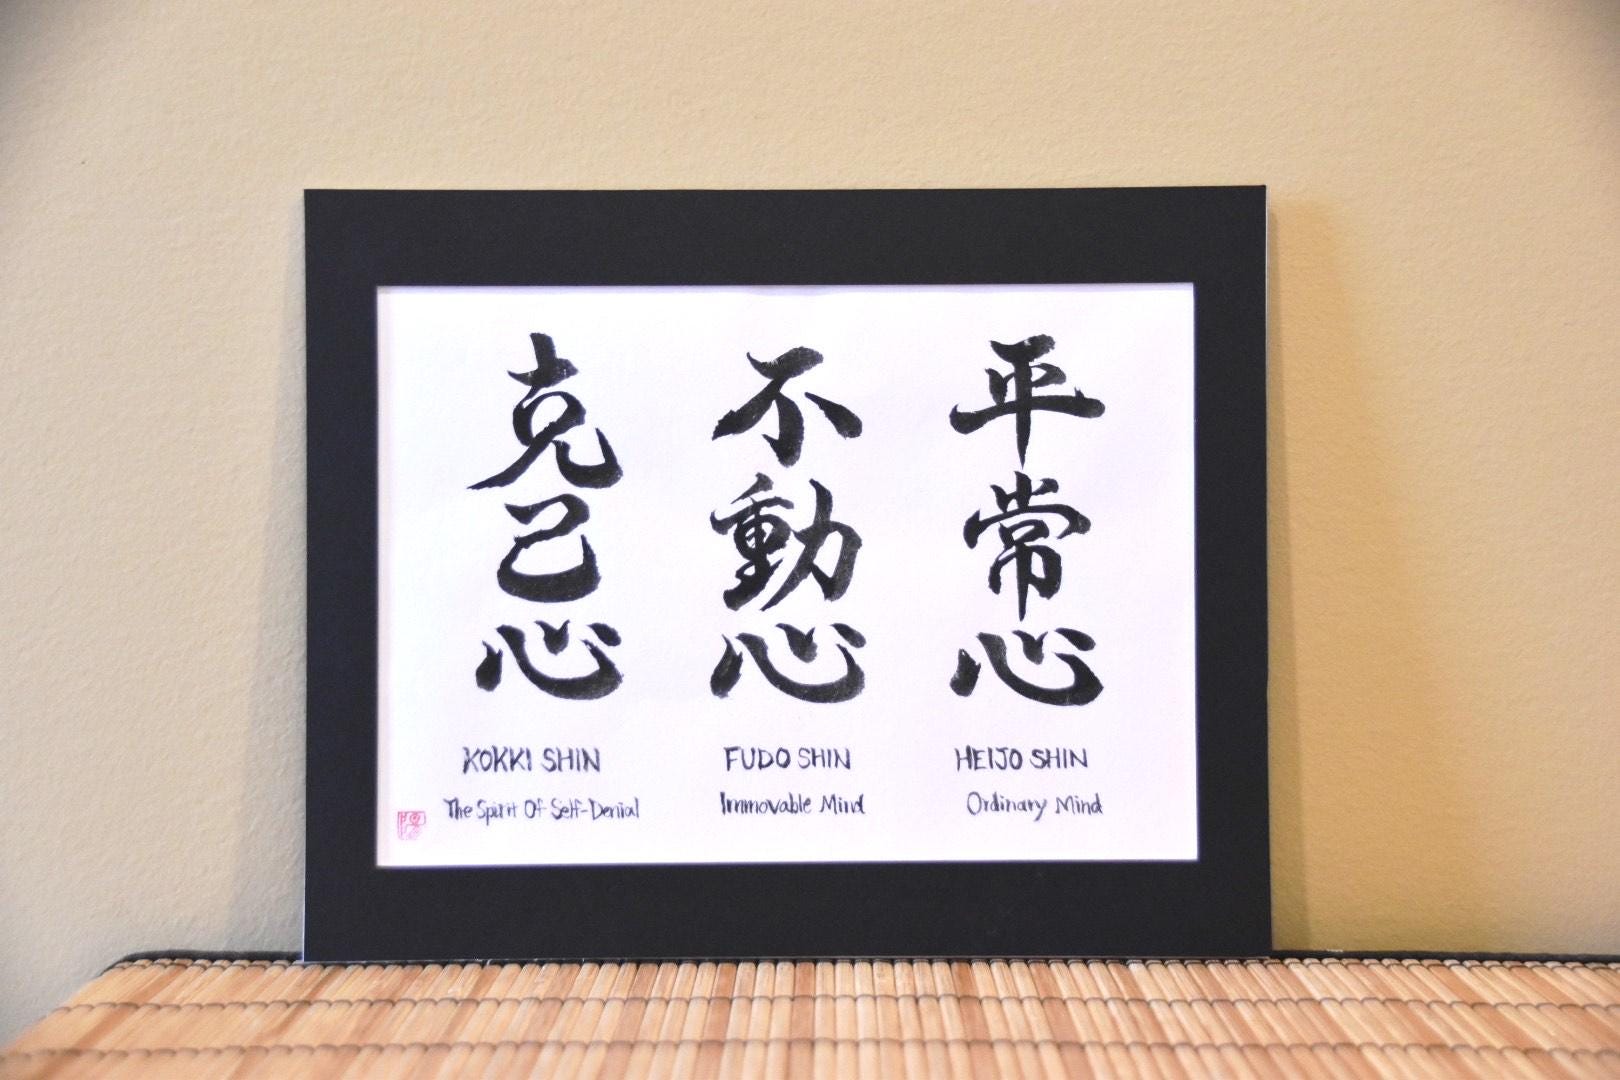 克己心
不動心
平常心
KOKKI SHIN
FUDO SHIN
HEIJO SHIN
The Spirit Of Self-Denial
Immovable Mind
Ordinary Mind